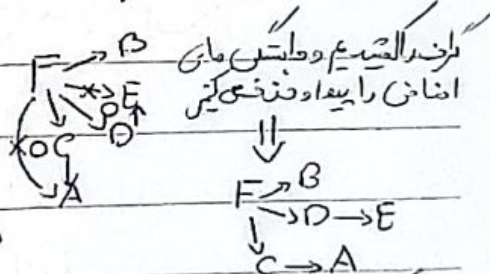 گراف را کشیدیم و وابستگی های
اضافی را پیدا و حذف می کنیم
F → B
F → E
F → D
D → E
F → C
F → A
C → A
⇓
F → B
F → D → E
F → C → A